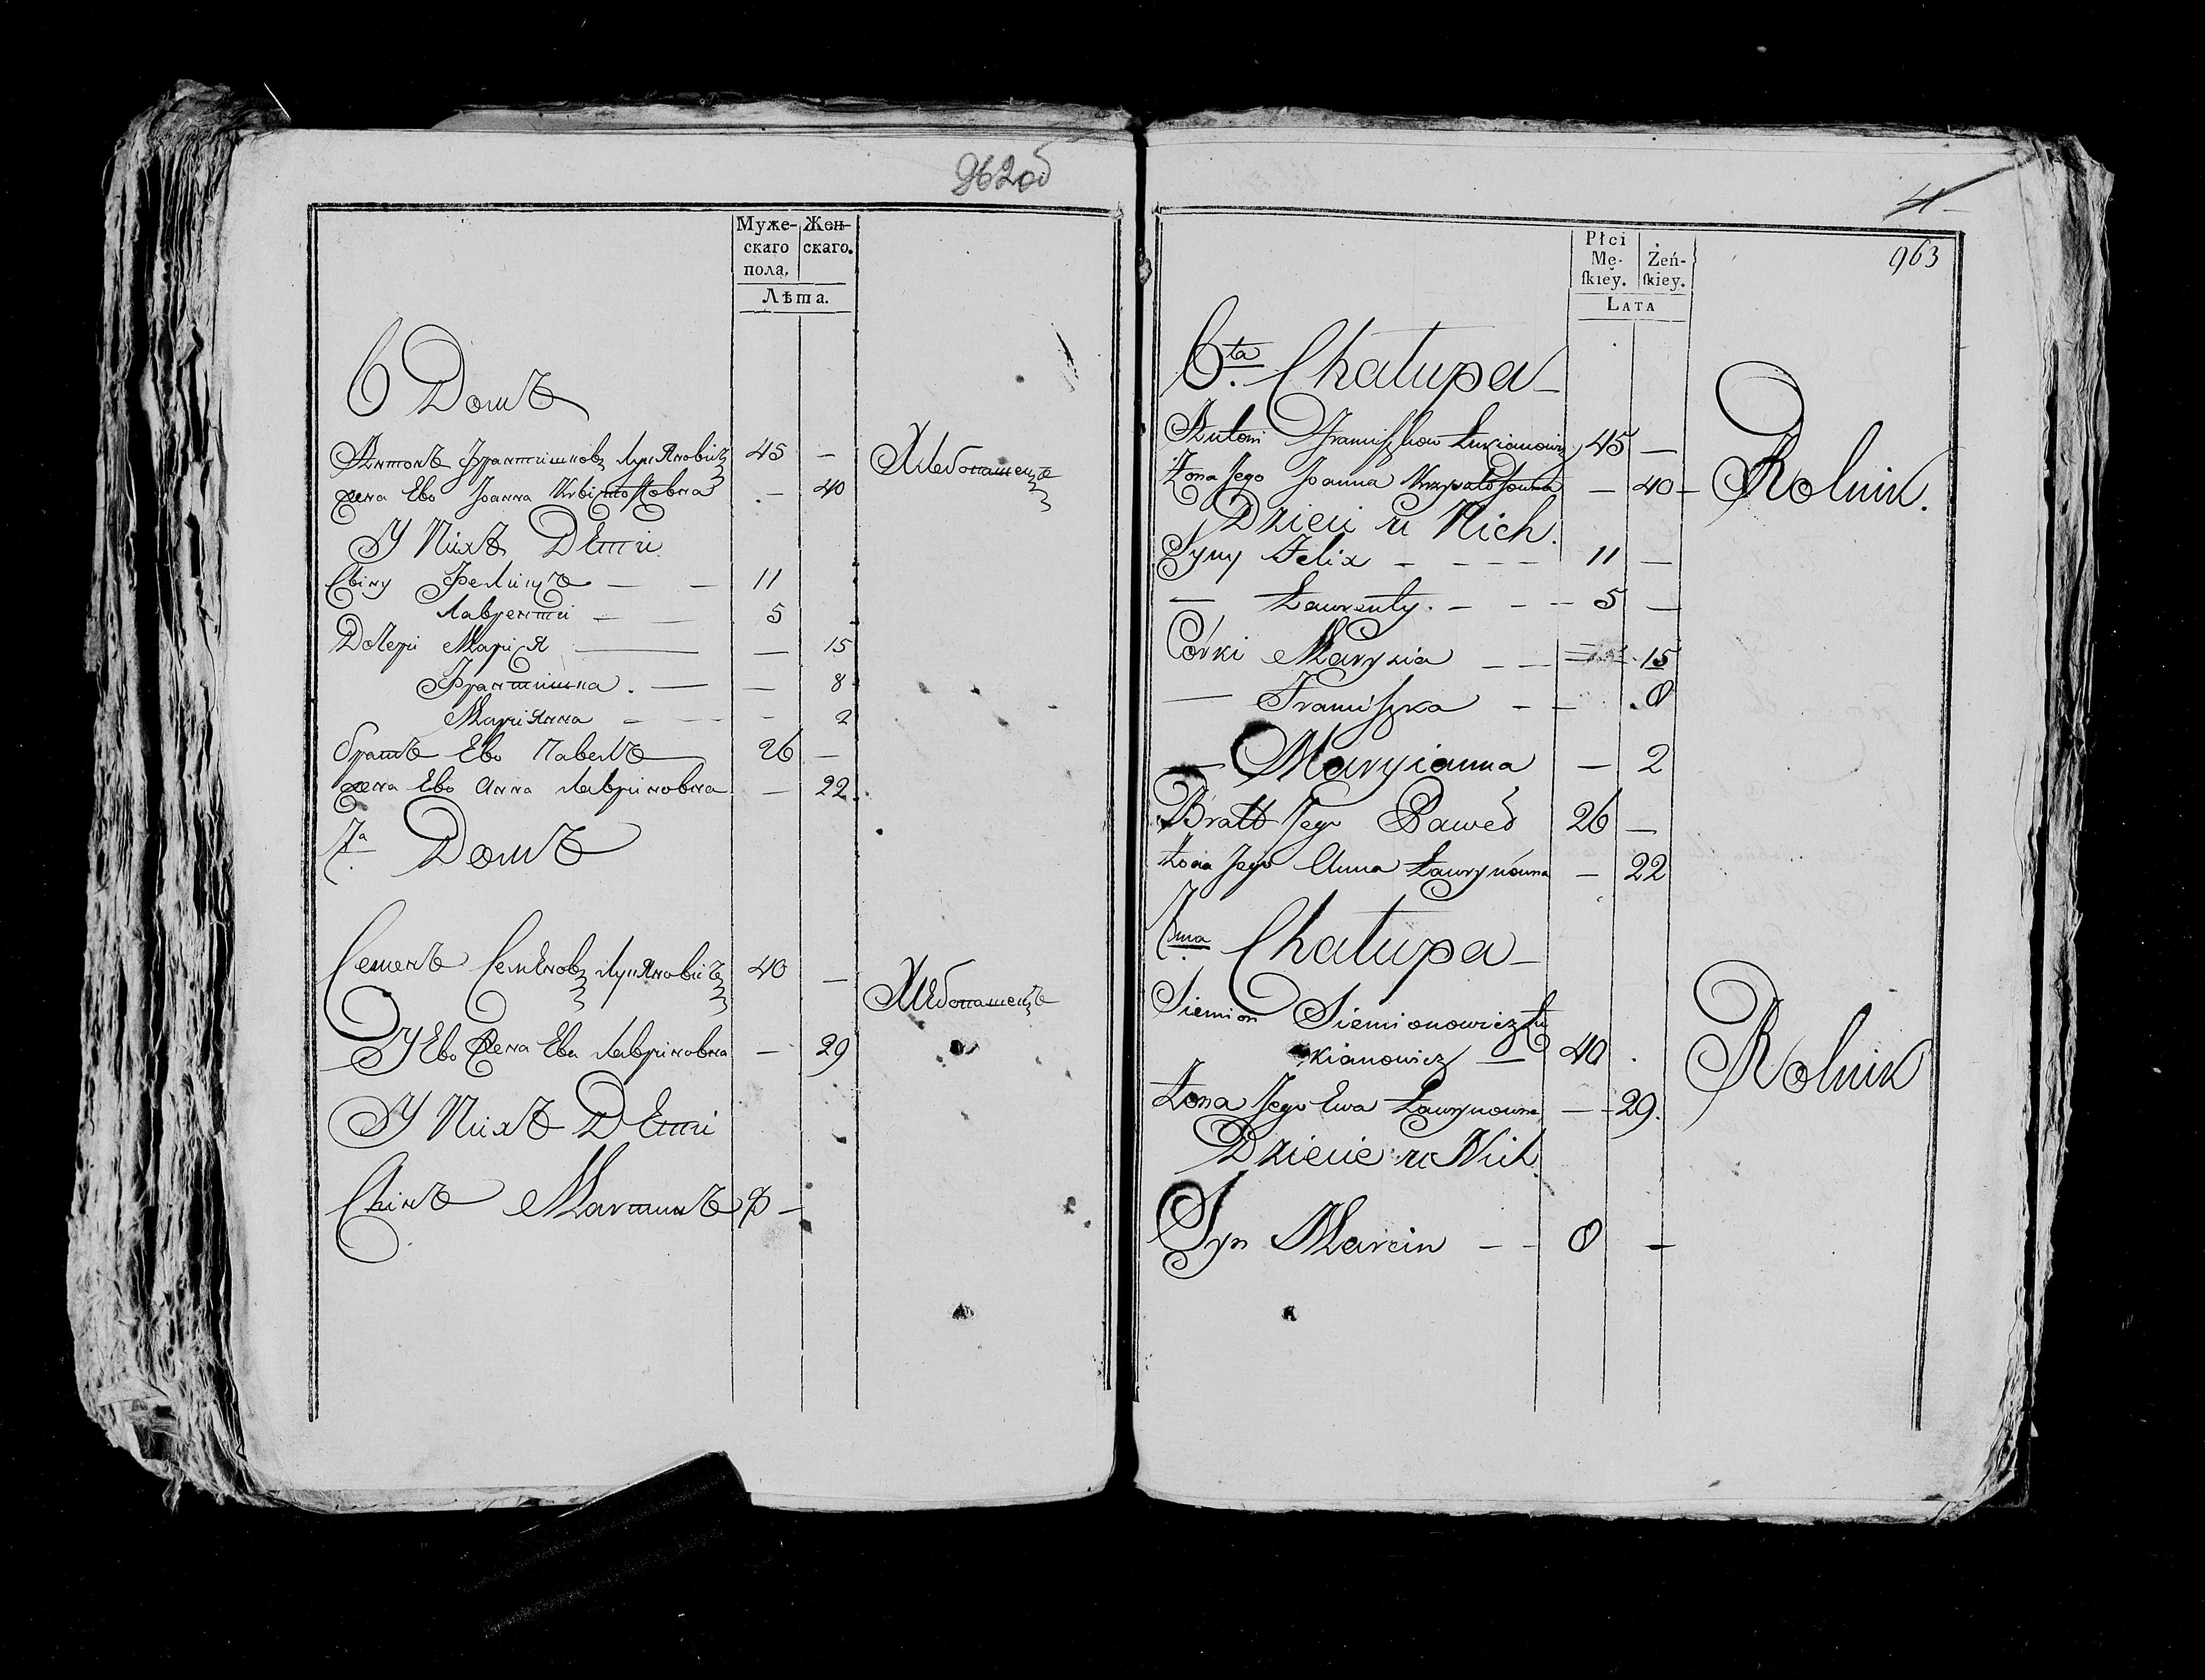 962об
Муже- Жен-
скаго скаго.
пола,
Лѣта.
6 Домъ
Антонъ Францишковъ Лукяновичъ 45 —
Хлебопашецъ
жена Ево Иоанна — 40
У Нихъ Дети
Сыну Феликсъ — — 11
Лаврентий — — 5
Дочери Мария — — 15
Франтишка . — — 8
Марианна — — - 2
братъ Ево Павелъ — 26 —
жена Ево Анна Лавриновна — 22
7а Домъ
Семенъ Семеновъ Лукяновичъ 40 —
Хлебопашецъ
У Ево Жена Ева Лавриновна — 29
У Нихъ Дети
Сынъ Мартинъ —
4
963
Płci Żeń-
Mę- ſkiey.
ſkiey.
LATA
6ta Chałupa
Antoni Franciszkow Łukianowicz 45 —
Rolnik.
Żona Jego Joanna Krzysztofowna — 40
Dzieci u Nich.
Syny Felix - - - - 11 —
— Ławrenty. - - - 5 —
Córki Maryia - - 15
— Franciszka - - . 8
— Maryianna — 2
Bratt Jego Paweł 26 —
Żona Jego Anna Ławrynówna — 22
7ma Chałupa
Siemion Siemionowicz Łu
kianowicz — 40 .
Rolnik
Żona Jego Ewa Ławrynowna — 29.
Dziecie u Nich
Syn Marcin - - 8 —